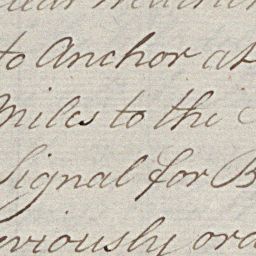 to Anchor at
Miles to the
Signal for B
eviously ord